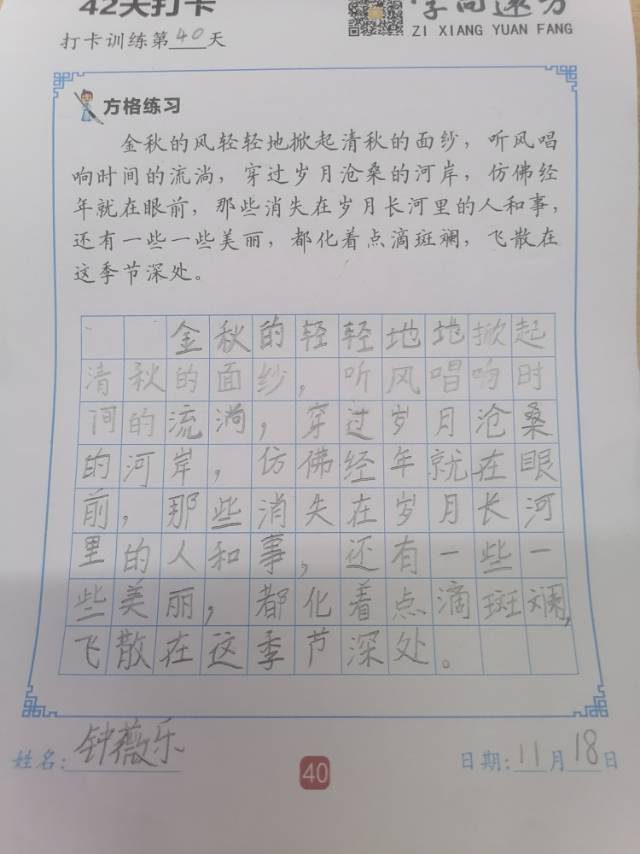 42天打卡
字向速方
打卡训练第40天
ZI XIANG YUAN FANG
方格练习
金秋的风轻轻地掀起清秋的面纱，听风唱
响时间的流淌，穿过岁月沧桑的河岸，仿佛经
年就在眼前，那些消失在岁月长河里的人和事，
还有一些一些美丽，都化着点滴斑斓，飞散在
这季节深处。
金秋的轻轻地地掀起
清秋的面纱，听风唱响时
间的流淌，穿过岁月沧桑
的河岸，仿佛经年就在眼
前，那些消失在岁月长河
里的人和事，还有一些一
些美丽，都化着点滴斑斓，
飞散在这季节深处。
姓名：钟薇乐
40
日期：11月18日